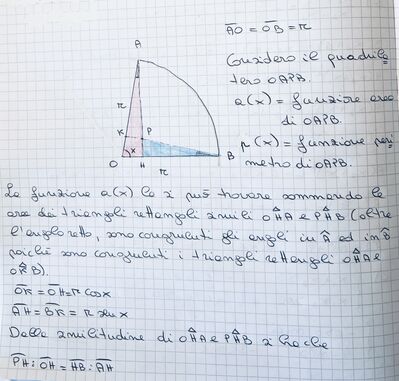 AO = OB = r
A
Considero il quadrila
tero OAPB.
r
a(x) = funzione area
di OAPB.
K
P
p(x) = funzione peri
x
metro di OAPB.
O
H
B
r
La funzione a(x) la si può trovare sommando le
aree dei triangoli rettangoli simili OHA e PHB (oltre
l'angolo retto, sono congruenti gli angoli in A ed in B
poiché sono congruenti i triangoli rettangoli OHA e
OKB).
OK = OH = r cosx
AH = BK = r senx
Dalla similitudine di OHA e PHB si ha che
PH : OH = HB : AH